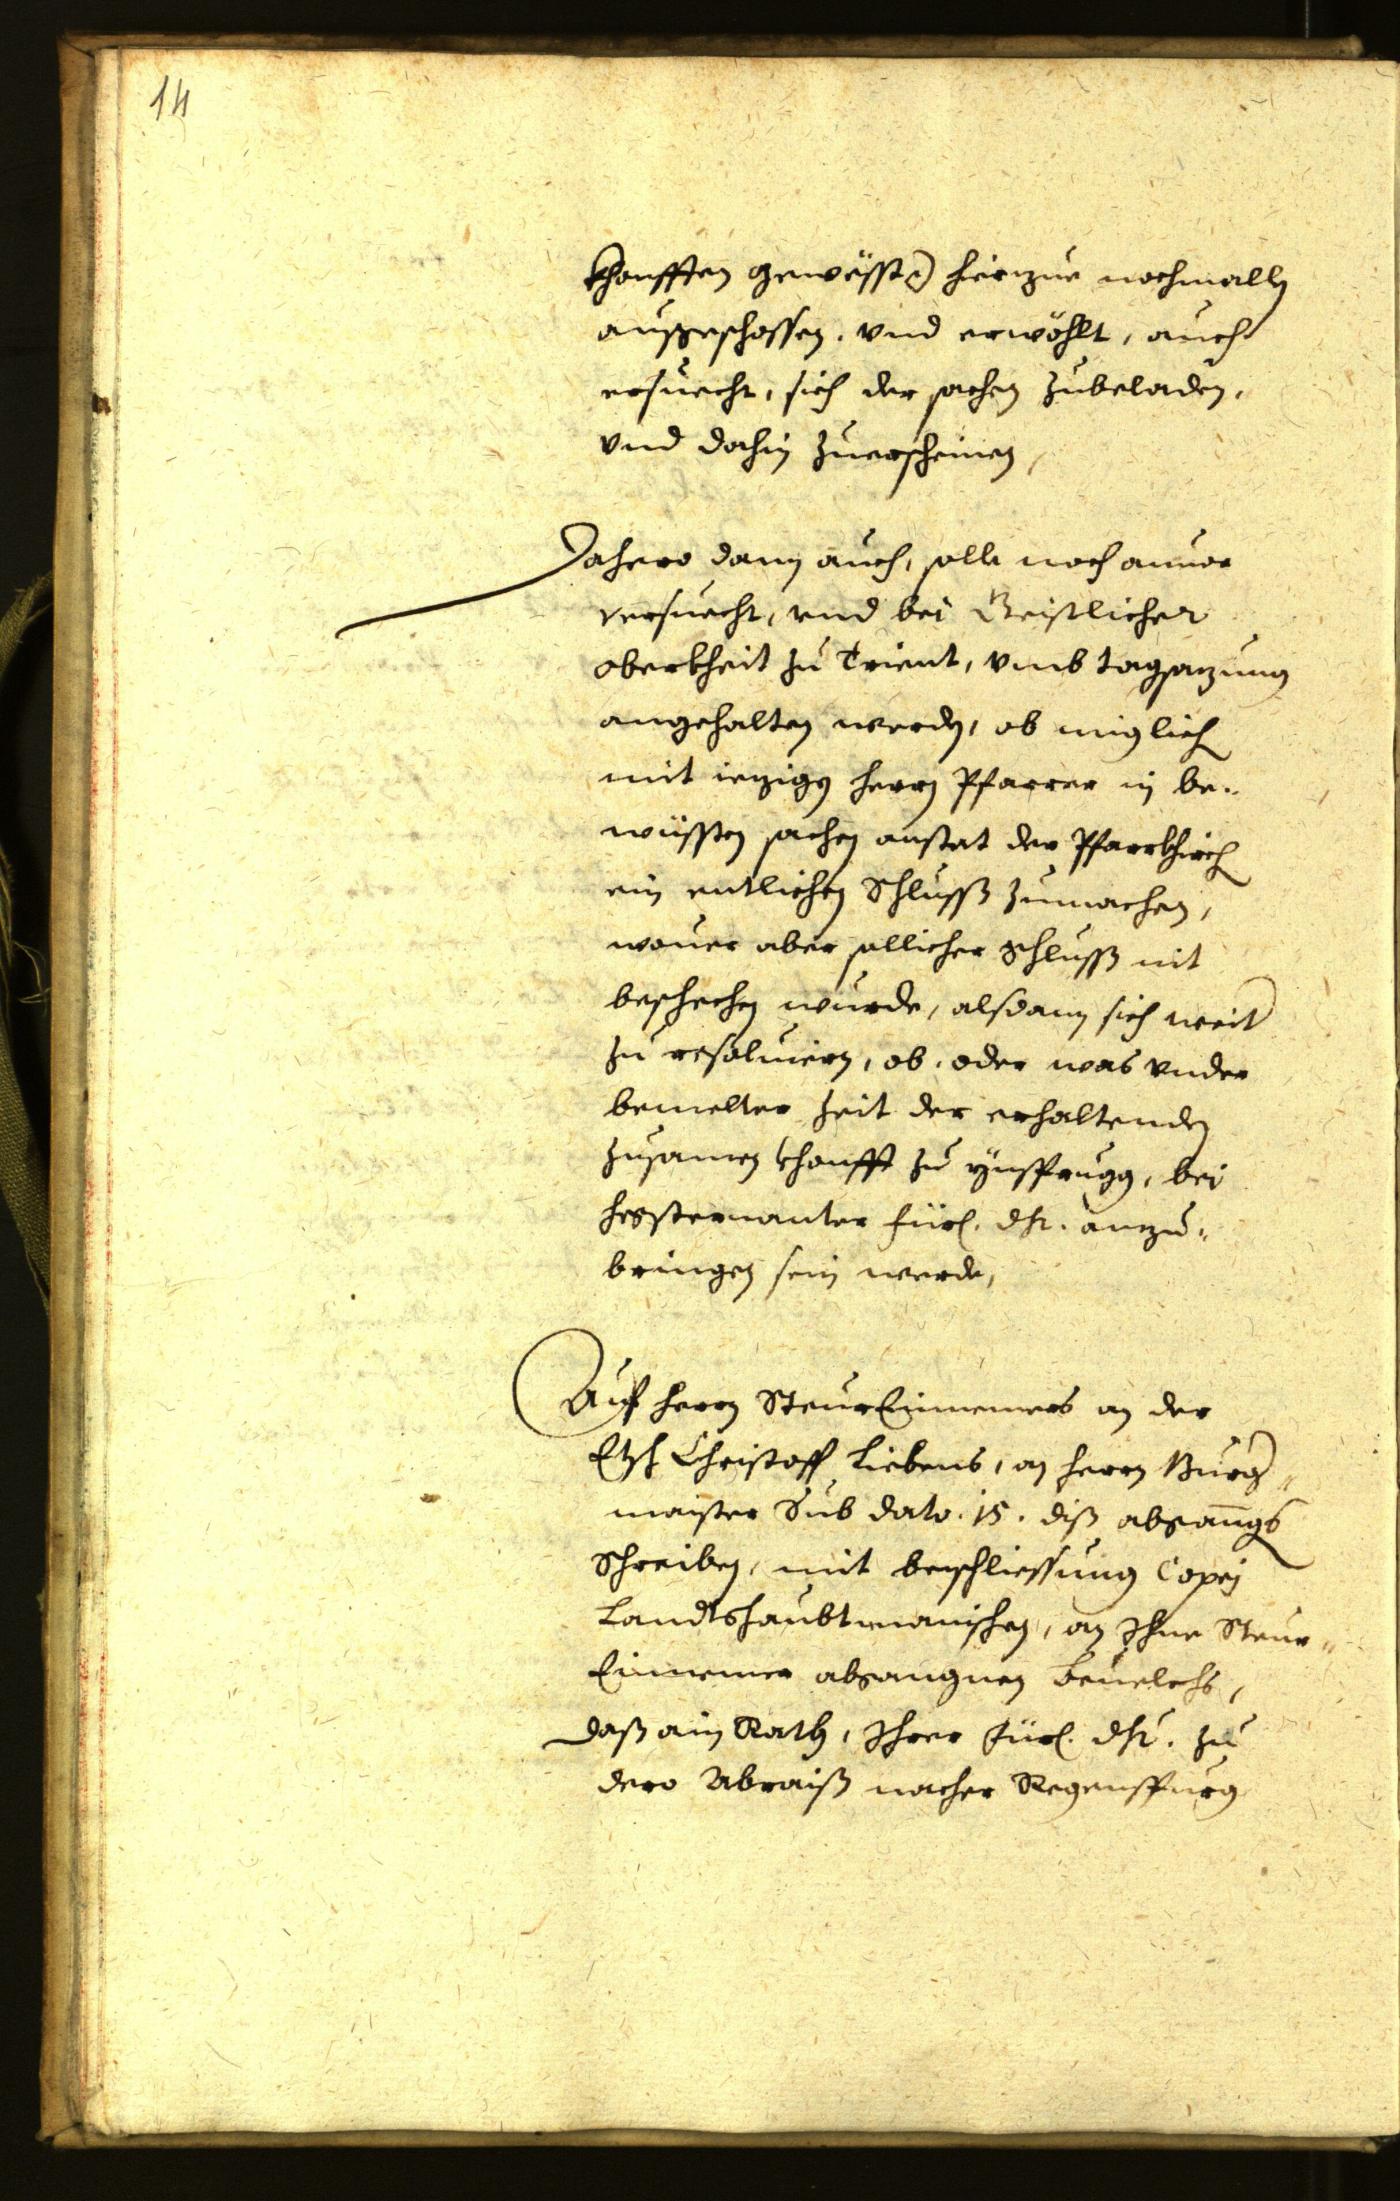 14
khonfften gewesst hierzue nochmalln
außgeschossen, vnd erwöhlt, auch
ersuecht, sich der sachen zubeladen,
vnd dahin zuerscheinen,
Dahero dann auch, solle noch anuor
versuecht, vnd bei Geistlicher
oberkheit zu Trient, vmb tagsatzung
angehalten werden, ob miglich
mit iezigen herrn Pfarrer in be-
wüssten sachen anstat der Pfarrkhirch
ein entlichen Schlusß zumachen,
wouer aber sollicher Schlusß nit
beschechen wurde, alsdann sich weit
zu resoluiern, ob, oder was vnder
bemelter Zeit der erhaltenden
zusamen khonfft zu Ynsprugg, bei
hegsternanter fürl. dht. anzu-
bringen sein werde,
Auf herrn SteurEinnemers an der
Etsch Christoff Liebens, an herrn Burg-
maister Sub dato. 15. diß abganngs
Schreiben, mit beschliessung Copej
Landtshaubtmanischen, an Ihne Steur-
Einnemer abgangnen beuelchs,
daß ain Rath, Ihrer fürl. dht. zu
dero Abraiß nacher Regenspurg